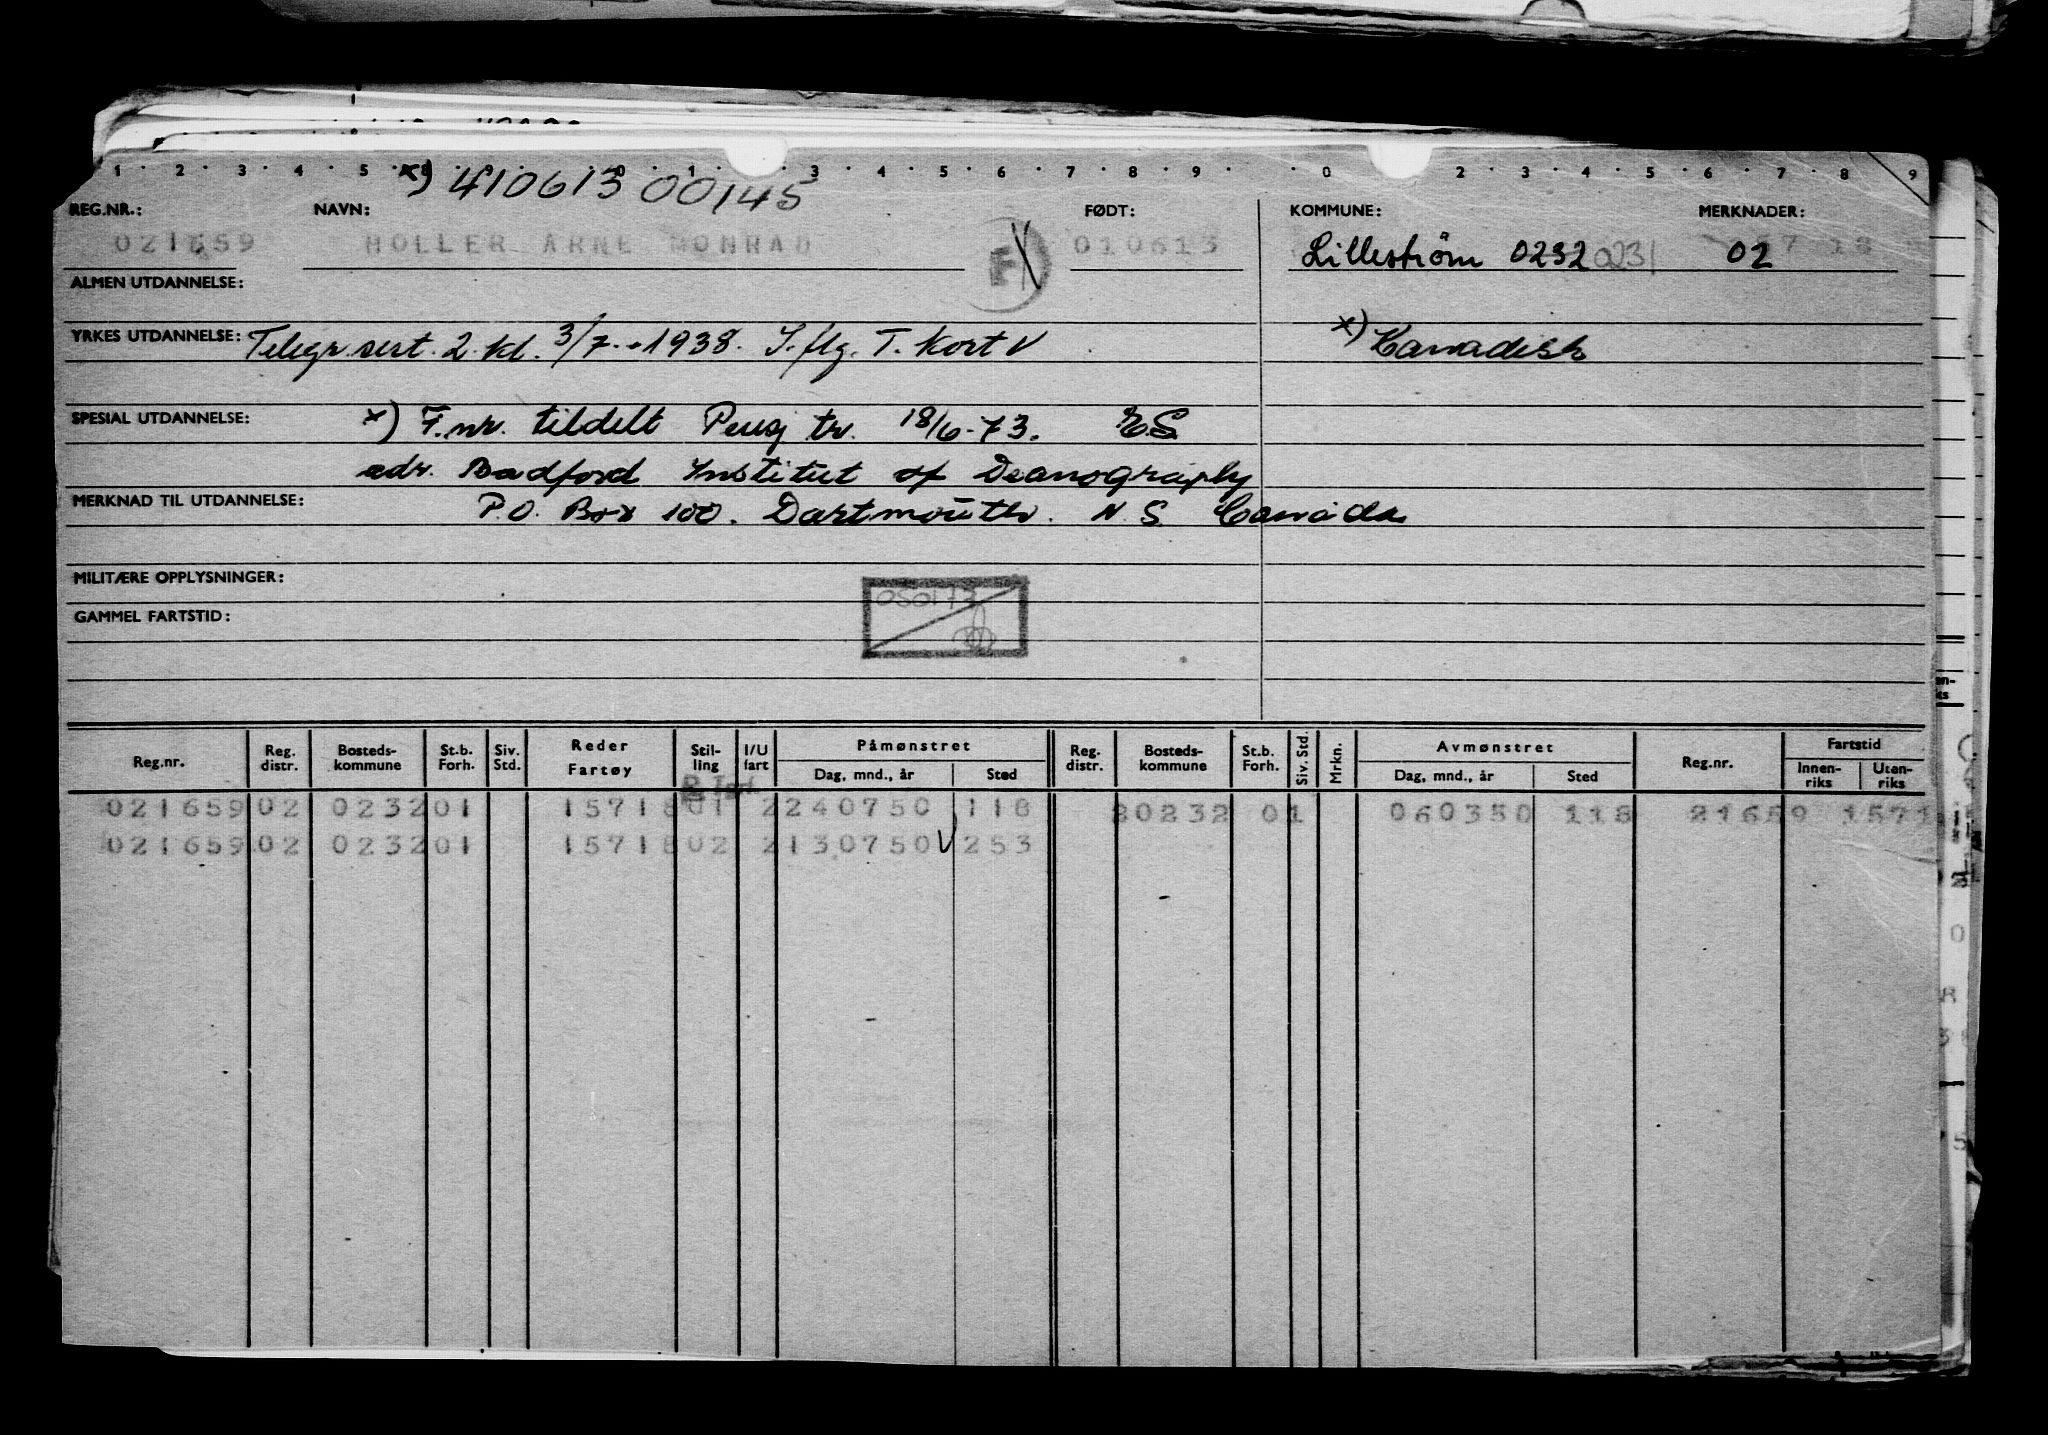 x) 410613 00145
REG.NR.: NAVN: FØDT: KOMMUNE: MERKNADER:
021659 HOLLER ARNE MONRAD F 010613 Lilleström 0232 0231 02
ALMEN UTDANNELSE:
YRKES UTDANNELSE: Telegr.sert. 2. kl. 3/7.-1938. I.flg. T. Kort V x) Kanadisk
SPESIAL UTDANNELSE: x) F.nr. tildelt Pensj tr. 18/6-73. E.S.
adr. Badford Institut of Oceanography
MERKNAD TIL UTDANNELSE: P.O. Box 100. Dartmouth. N.S. Canada
MILITÆRE OPPLYSNINGER:
050173
GAMMEL FARTSTID:
Reg.nr. Reg. distr. Bosteds-kommune St.b. Forh. Siv. Std. Reder Fartøy Stil-ling I/U fart Påmønstret Dag, mnd., år Sted Reg. distr. Bosteds-kommune St.b. Forh. Siv. Std. Mrkn. Avmønstret Dag, mnd., år Sted Reg.nr. Fartstid Innen-riks Uten-riks
021659 02 0232 01 15718 01 2 240750 118 20232 01 060350 118 21659 1571
021659 02 0232 01 15718 02 2 130750 253